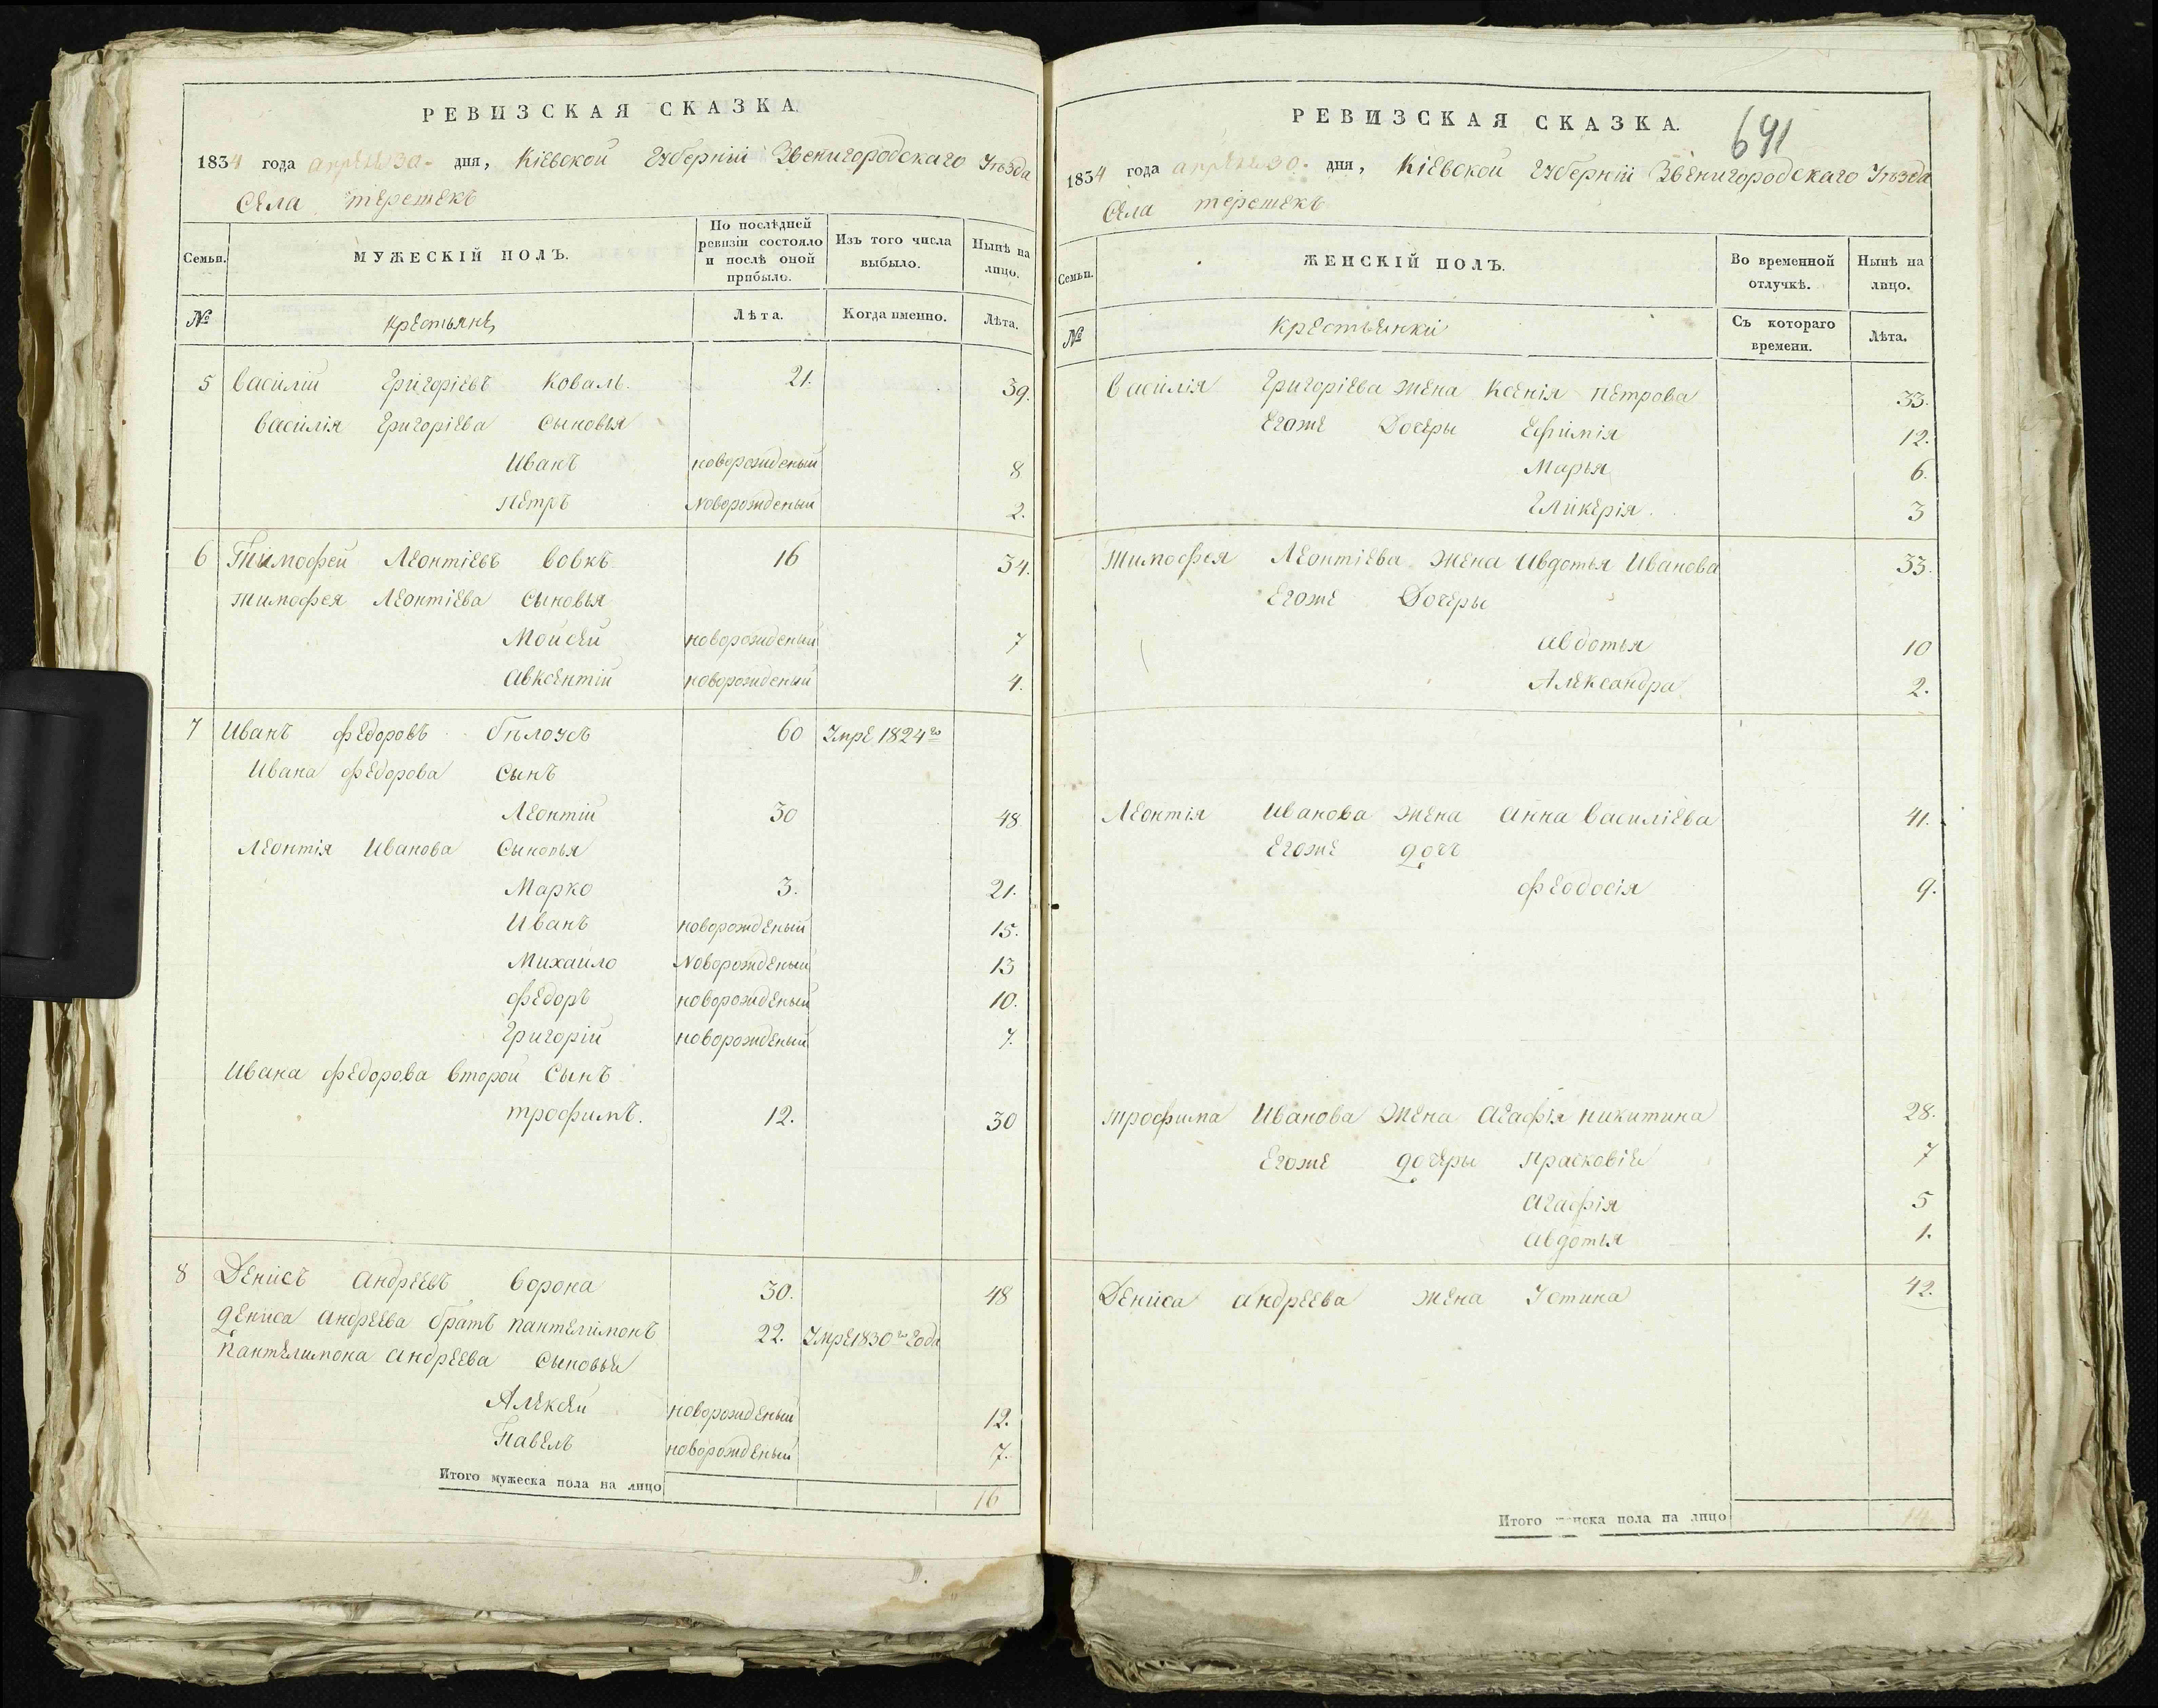 РЕВИЗСКАЯ СКАЗКА
1834 года апреля 30 дня, Кіевской Губерніи Звенигородскаго Уѣзда
Села терешекъ
Семьи.
МУЖЕСКІЙ ПОЛЪ.
По послѣдней ревизіи состояло и послѣ оной прибыло.
Изъ того числа выбыло.
Нынѣ на лицо.
№
крестьяне
Лѣта.
Когда именно.
Лѣта.
5 Василій Григоріевъ Коваль. 21. 39.
Василія Григоріева Сыновья
Иванъ новорожденый 8
Петръ новорожденый 2.
6 Тимофей Леонтіевъ Вовкъ 16 34.
тимофея Леонтіева Сыновья
Мойсей новорожденый 7
Авксентій новорожденый 4.
7 Иванъ федоровъ бѣлоусъ 60 Умре 1824го
Ивана федорова Сынъ
Леонтій 30 48
Леонтія Иванова Сыновья
Марко 3. 21.
Иванъ новорожденый 15.
Михайло новорожденый 13
федоръ новорожденый 10.
Григорій новорожденый 7.
Ивана федорова второй Сынъ
трофимъ. 12. 30
8 Денисъ Андреевъ Ворона 30. 48
Дениса Андреева братъ Пантелимонъ 22. Умре 1830го Года
Пантелимона Андреева Сыновья
Алексей новорожденый 12.
Павелъ новорожденый 7.
Итого мужеска пола на лицо 16
РЕВИЗСКАЯ СКАЗКА.
691
1834 года апреля 30 дня, Кіевской Губерніи Звенигородскаго Уѣзда
Села терешекъ
Семьи.
ЖЕНСКІЙ ПОЛЪ.
Во временной отлучкѣ.
Нынѣ на лицо.
№
Крестьянки
Съ котораго времени.
Лѣта.
Василія Григоріева жена Ксенія Петрова 33.
Егоже Дочеры Ефимія 12.
Марья 6.
Гликерія. 3
тимофея Леонтіева жена Ивдотья Иванова 33.
Егоже Дочеры
Авдотья 10
Александра 2.
Леонтія Иванова жена Анна Василіева 41.
Егоже дочь
феодосія 9.
трофима Иванова жена Агафія Никитина 28.
Егоже дочеры Прасковія 7
Агафія 5
Авдотья 1.
Дениса Андреева жена Устина 42.
Итого женска пола на лицо